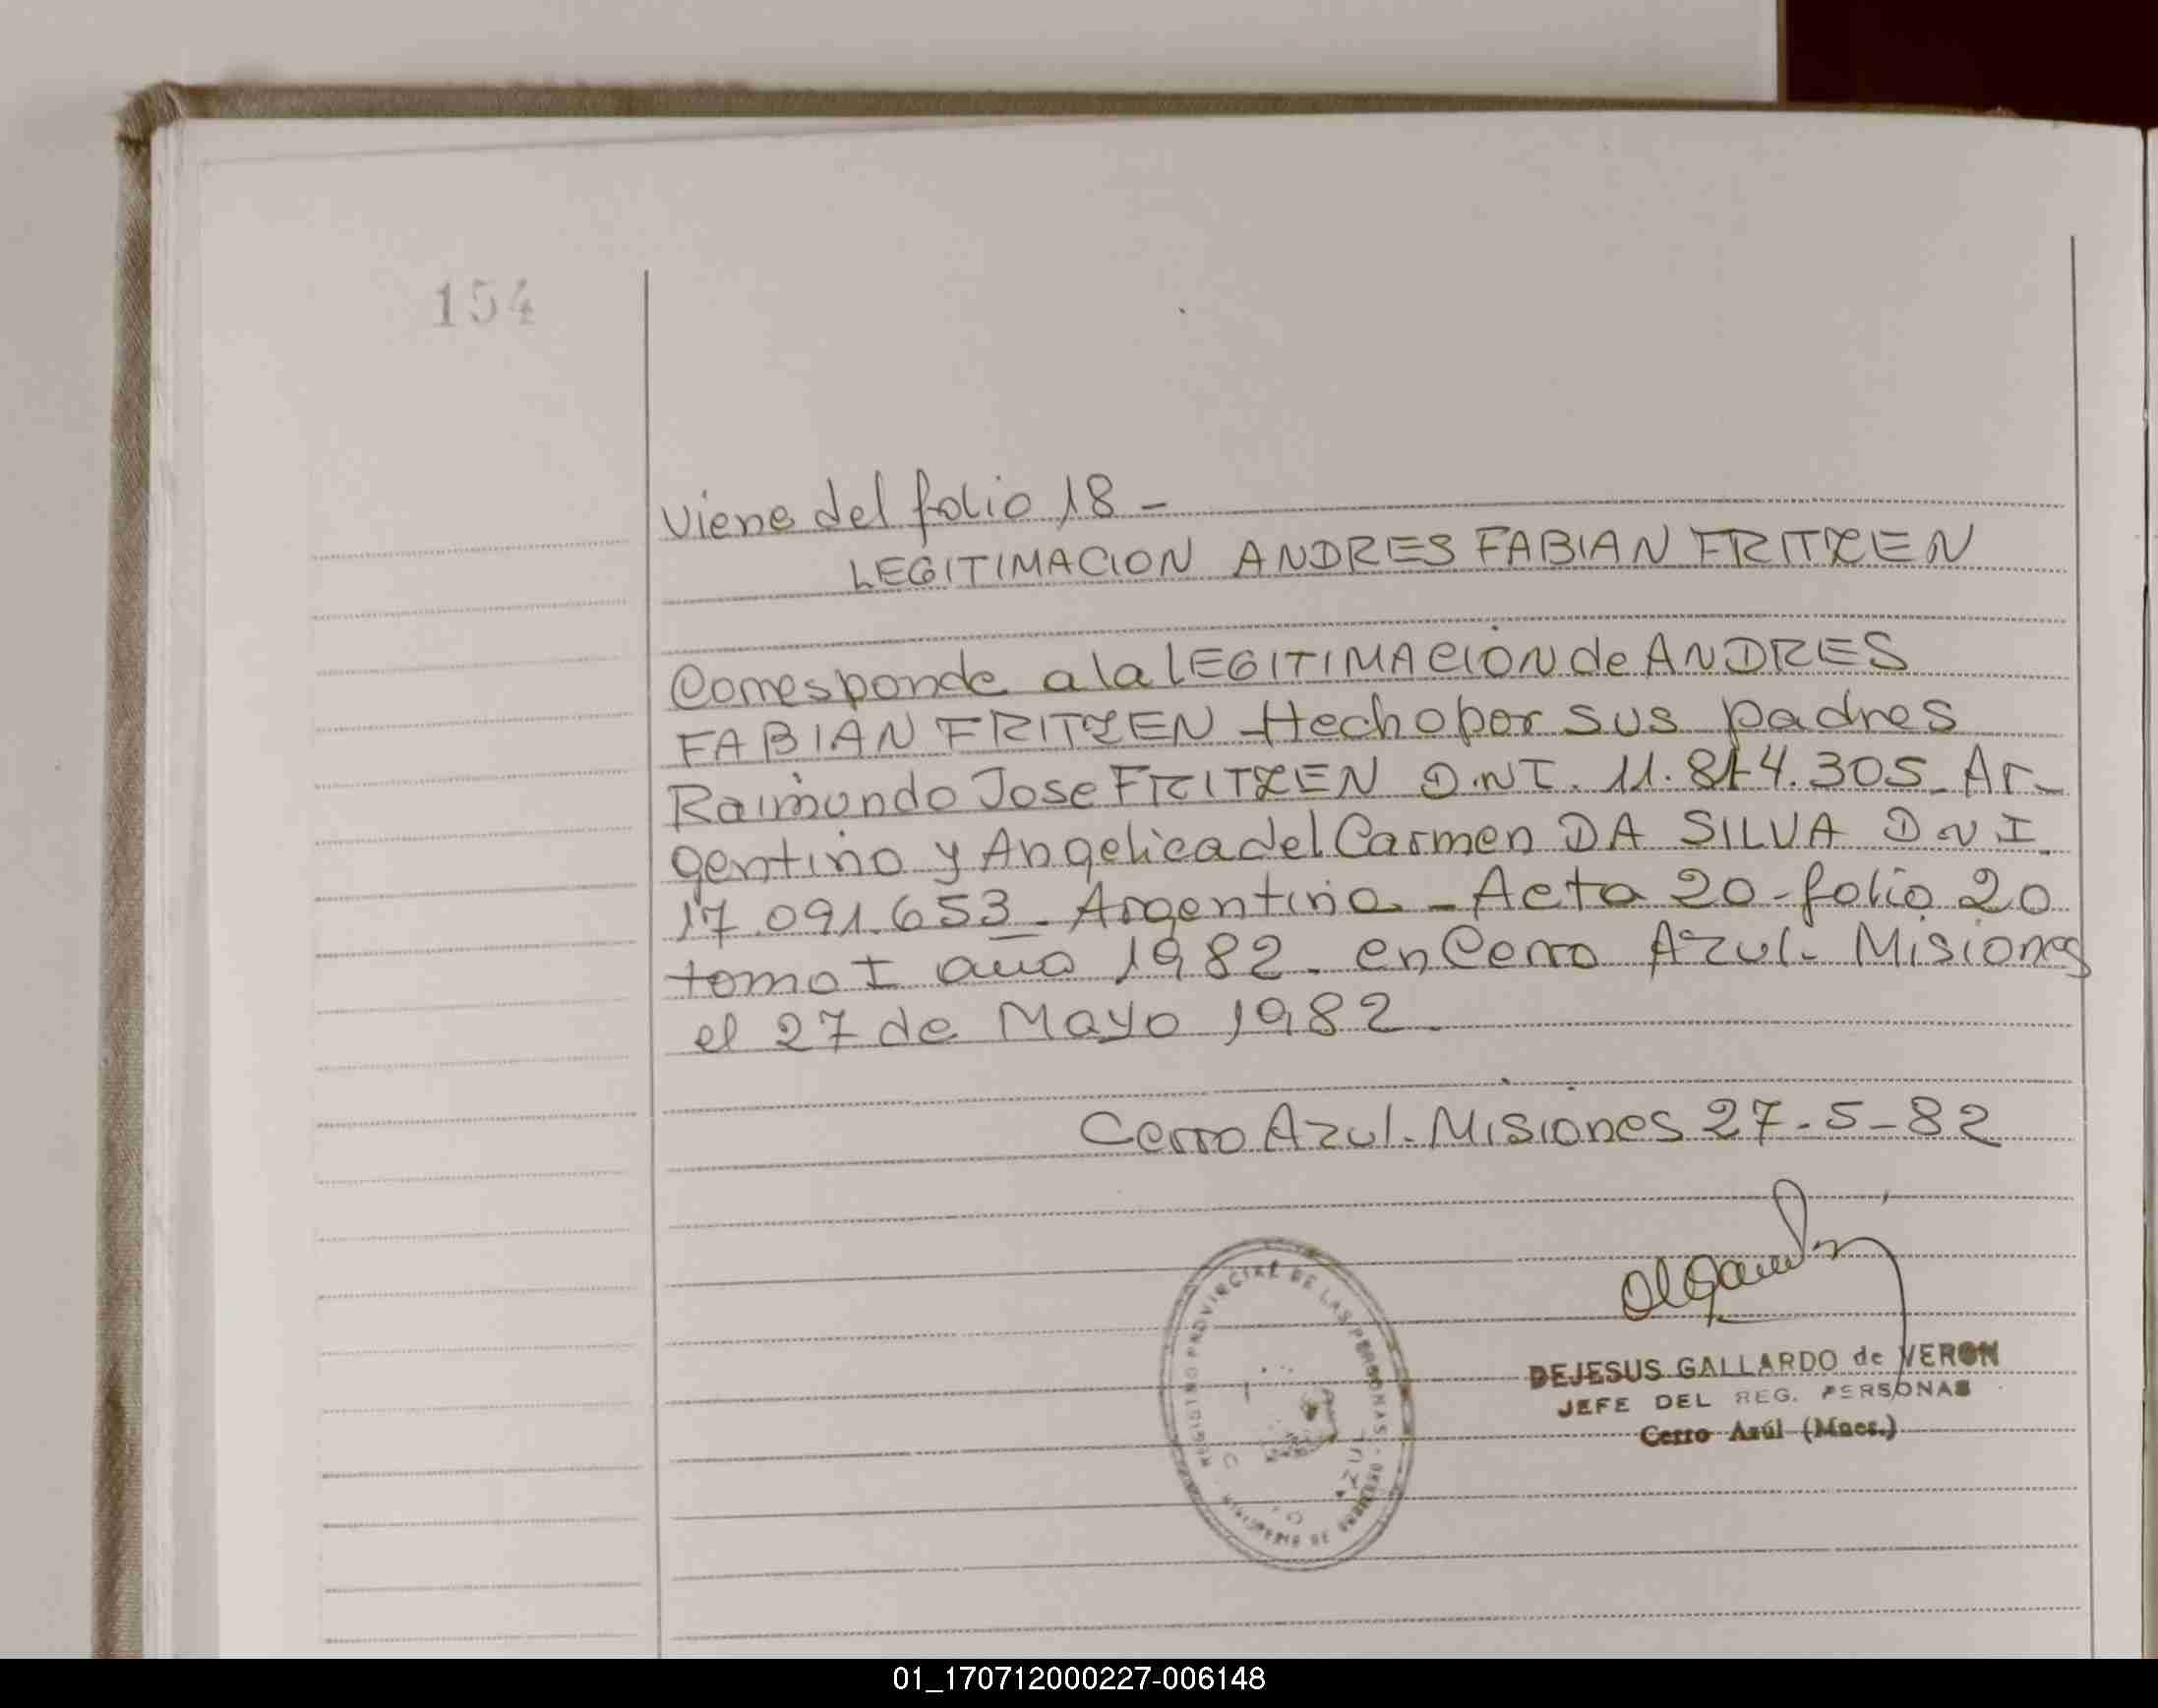 154
Viene del folio 18 -
LEGITIMACION ANDRES FABIAN FRITZEN
Corresponde a la LEGITIMACION de ANDRES
FABIAN FRITZEN Hecho por sus padres
Raimundo Jose FRITZEN D.N.I. 11.814.305 - Ar-
gentino y Angelica del Carmen DA SILVA D N I.
17.091.653 - Argentina - Acta 20 - folio 20
tomo I año 1982. en Cerro Azul. Misiones
el 27 de Mayo 1982.
Cerro Azul. Misiones 27-5-82
REGISTRO PROVINCIAL DE LAS PERSONAS
DEJESUS GALLARDO de VERON
JEFE DEL REG. PERSONAS
Cerro Azúl (Mnes.)
01_170712000227-006148